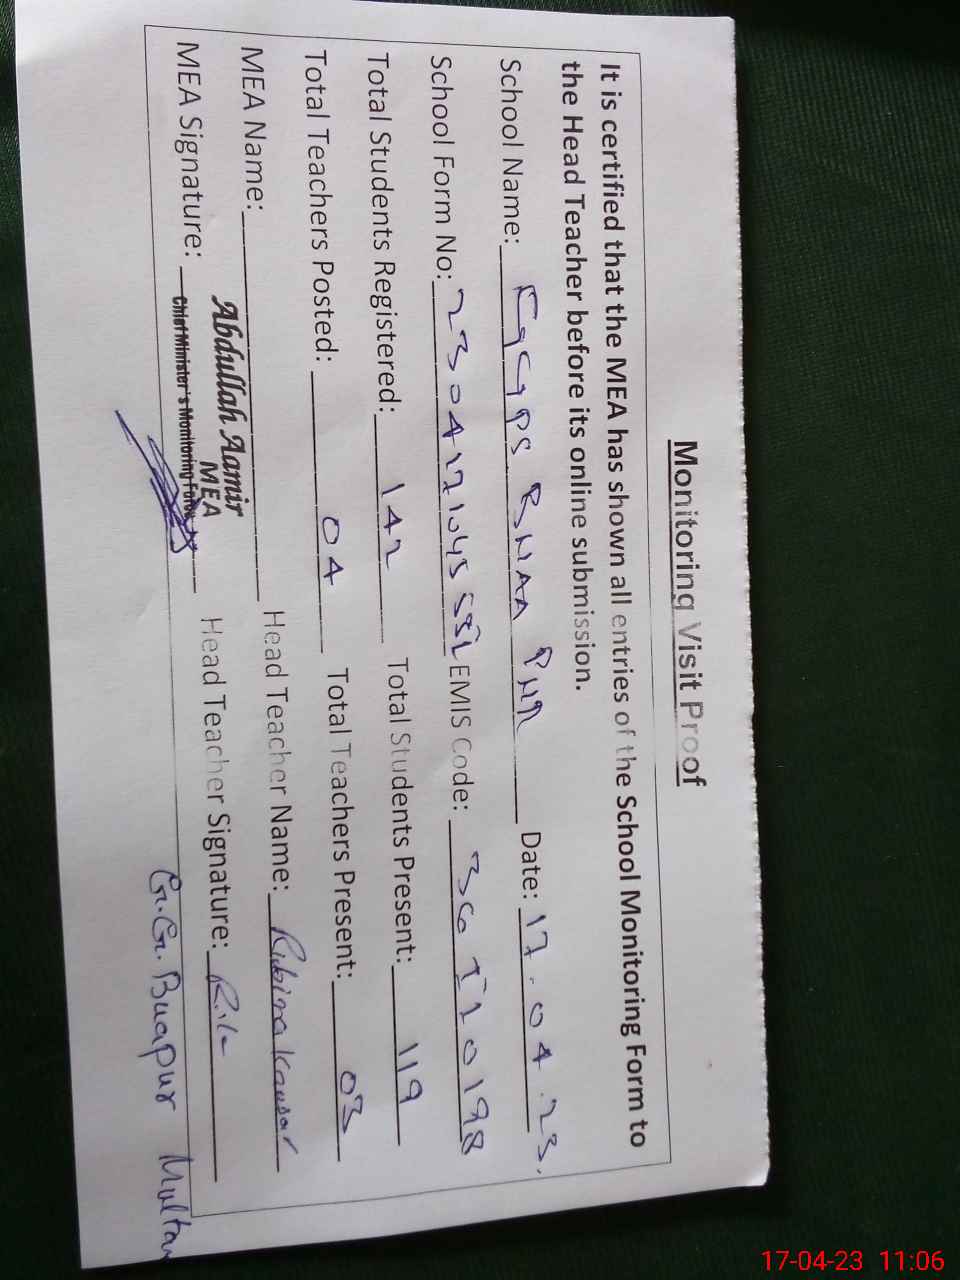 Monitoring Visit Proof
It is certified that the MEA has shown all entries of the School Monitoring Form to
the Head Teacher before its online submission.
School Name: Date: 17.04.23.
School Form No: EMIS Code:
Total Students Registered: 142 Total Students Present: 119
Total Teachers Posted: 04 Total Teachers Present: 03
MEA Name: Abdullah Aamir Head Teacher Name: Rubina Kausar
MEA
MEA Signature: Chief Minister's Monitoring Force Head Teacher Signature:
Multan
17-04-23 11:06